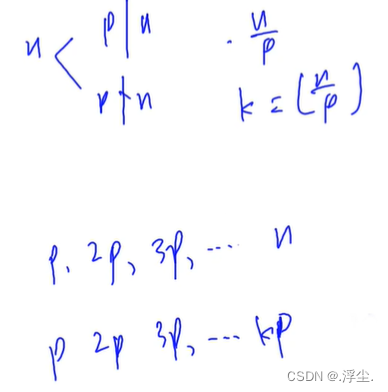 p | n
n < · n/p
p ∤ n k = [n/p]
p, 2p, 3p, ··· n
p 2p 3p, ··· kp
CSDN @.浮尘.